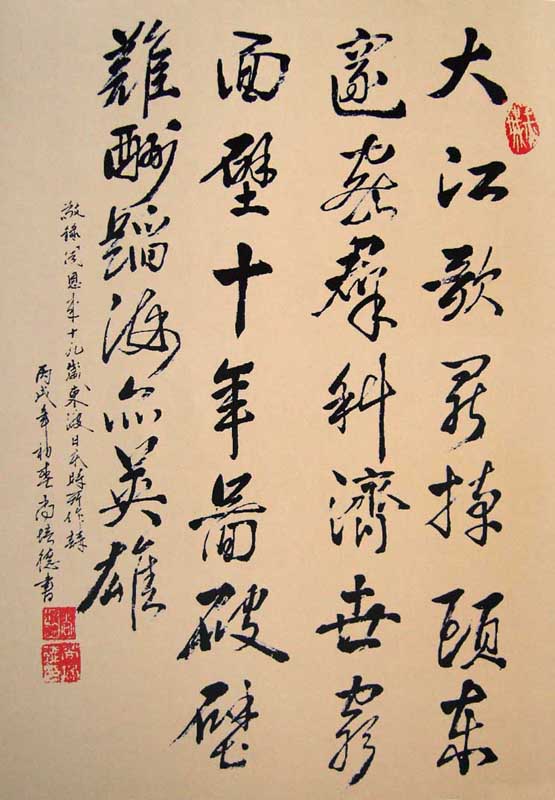 大江歌罷掉頭東
邃密羣科濟世窮
面壁十年圖破壁
難酬蹈海亦英雄
敬錄周恩來十九歲東渡日本時所作詩
丙戌年初春尚培德書